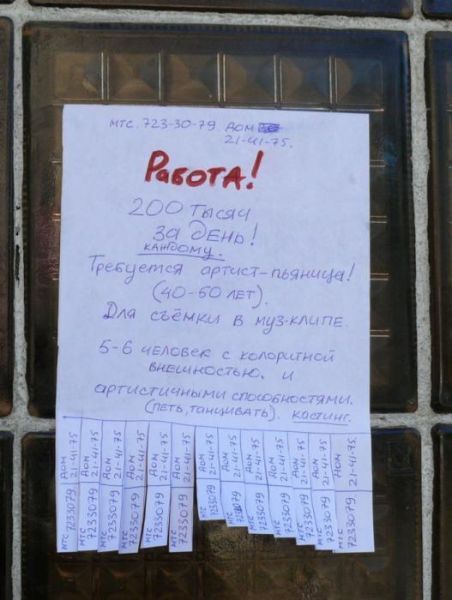 мтс. 723-30-79. дом
21-41-75.
РАБОТА!
200 тысяч
за день!
каждому.
Требуется артист-пьяница!
(40-60 лет).
Для съёмки в муз-клипе.
5-6 человек с колоритной
внешностью. и
артистичными способностями.
(петь, танцивать). кастинг.
МТС 7233079 Дом 21-41-75
МТС 7233079 Дом 21-41-75
МТС 7233079 Дом 21-41-75
МТС 7233079 Дом 21-41-75
МТС 7233079 Дом 21-41-75
МТС 7233079 Дом 21-41-75
МТС 7233079 Дом 21-41-75
МТС 7233079 Дом 21-41-75
МТС 7233079 Дом 21-41-75
МТС 7233079 Дом 21-41-75
МТС 7233079 Дом 21-41-75
МТС 7233079 Дом 21-41-75